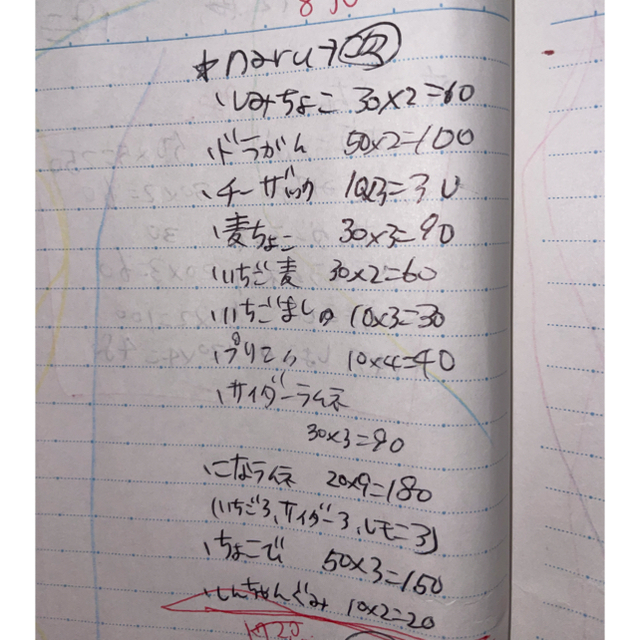 naru
・しみちょこ 30×2=60
・ドラがん 50×2=100
・チーザック 10×3=30
・麦ちょこ 30×3=90
・いちご麦 30×2=60
・いちごましゅ 10×3=30
・プリマハ 10×4=40
・サイダーラムネ
30×3=90
・こなラムネ 20×9=180
(いちご3、サイダー3、レモン3)
・ちょこで 50×3=150
・しんちゃんぐみ 10×2=20